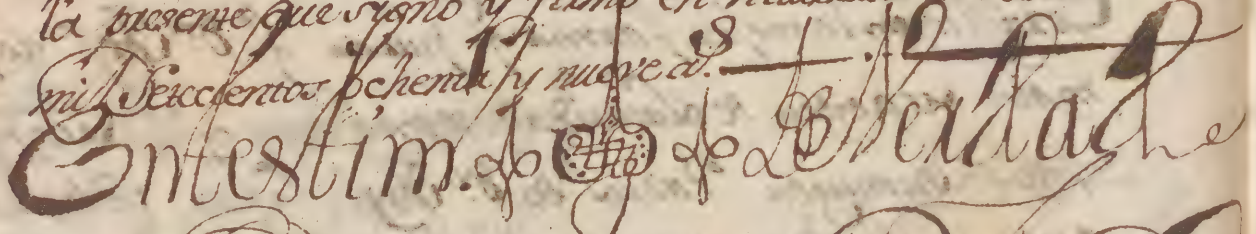 la presente que sygno y firmo en
mil Setecientos ochenta y nueve as.
En testim. de Verdad